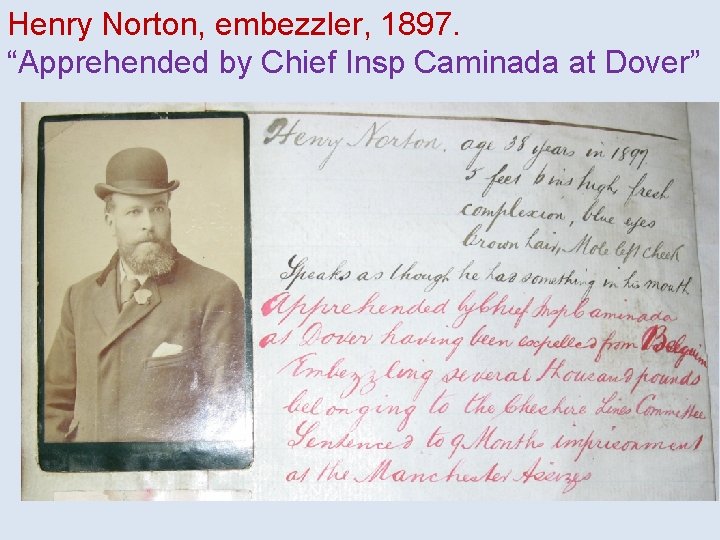 Henry Norton, embezzler, 1897.
“Apprehended by Chief Insp Caminada at Dover”
Henry Norton. age 38 years in 1897.
5 feet 6 ins high, fresh
complexion, blue eyes
brown hair, Mole left cheek
Speaks as though he has something in his mouth
Apprehended by Chief Insp Caminada
at Dover having been expelled from Belguim
Embezzling several thousand pounds
belonging to the Cheshire Lines Committee
Sentenced to 9 Months imprisonment
at the Manchester Assizes